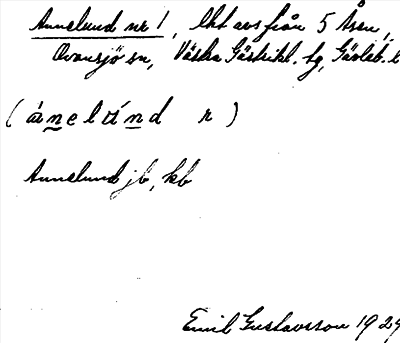 Annelund nr 1, lht avs från 5 Åsen,
Ovansjö sn, Västra Gästrikl. tg, Gävleb. l
( ánelúnd r )
Annelund jb, kb
Emil Gustavsson 1929